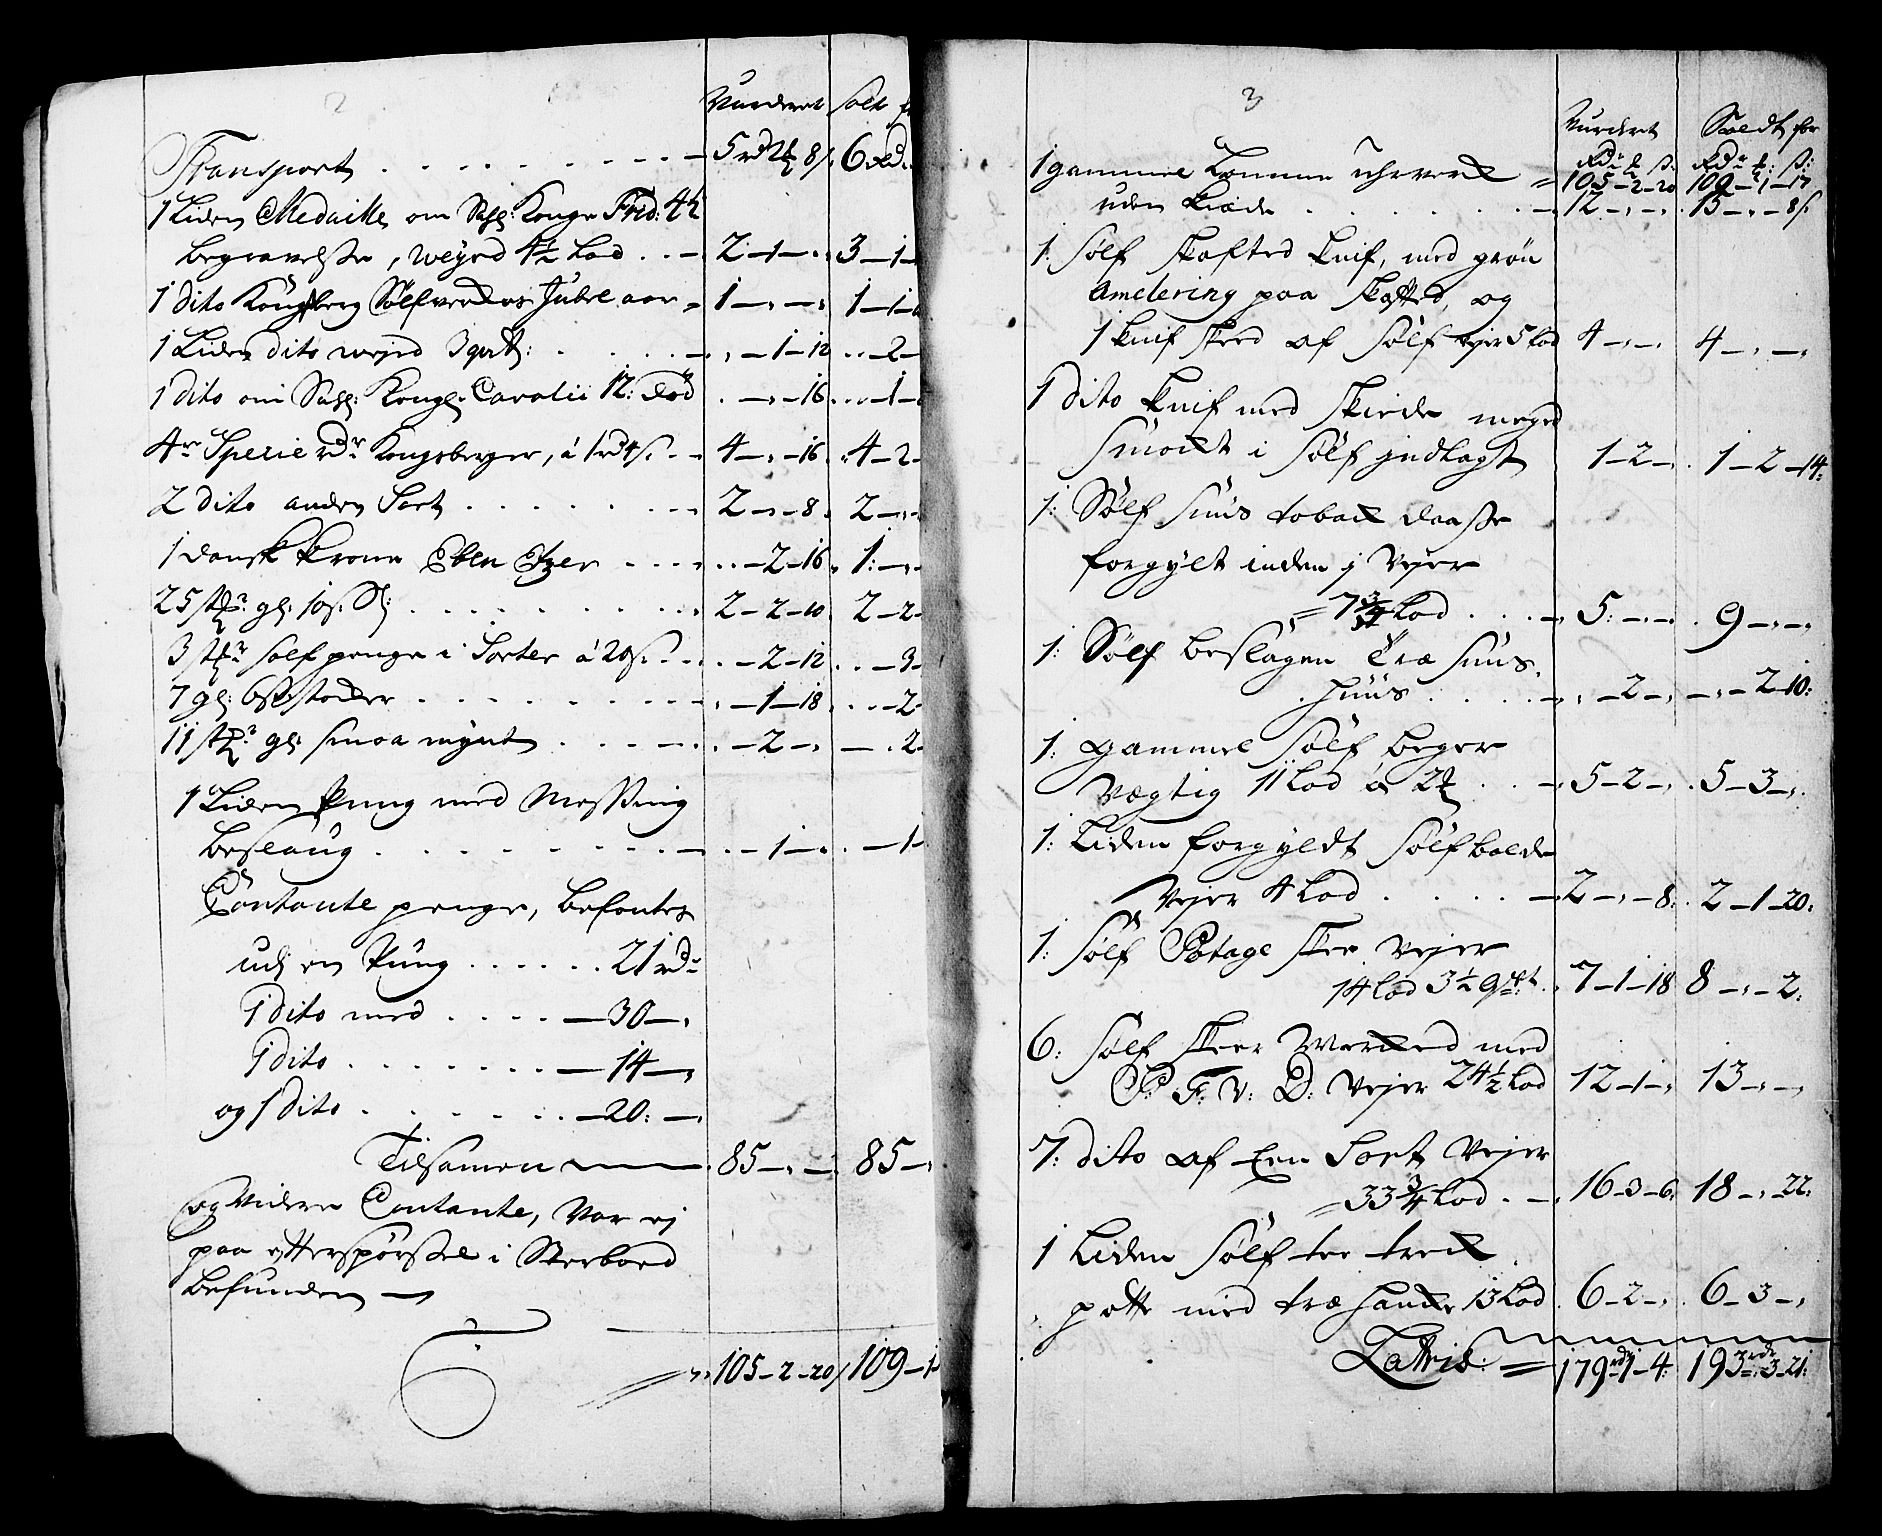 2
Vurderet Solt f
Transport . . . . . . . . . 5 rd 2 8 s. 6 rd.
1 Liden Medaille om Sahl: Konge Frid: 4de
begravelsse, weyed 4½ Lod . . 2-1-, 3-1-
1 dito Kongsberg Sølfverckes Jubel aar 1-,-, 1-1-
1 Liden dito wejed 3 qvt: . . . ,-1-12 ..-2-
1 dito om Sahl: Kong Carolii 12: død .-,-16. ..-1-
4re Specie rdr Kongsberger, á 1rd 4s. 4-,-16. 4-2-
2 dito anden Sort . . . . . . 2-,-8. 2-,-
1 dansk krone Eben Ezer . . . . .-2-16. 1:-,-
25 stkr gl: 10 s. St: . . . . . . . 2-2-10 2-2-
3 stkr sølf penge i Sorter á 20 s. . . . .-2-12 ..-3-
7 gl: 6 s. støcker . . . . . . . . ,-1-18 ...-2-
11 stkr gl: smaa mynt . . . . . .-2-, -.2-
1 Liden Pung med Messing
beslaug . . . . . . . . . .-1-. .-1-
Contante penge, befantes
udj en Pung . . . . . . 21 rdr
1 dito med . . . . -30-,
1 dito . . . . . . . -14-,
og 1 dito . . . . . . -20:-,
Tilsamen 85-,-. 85-,
og Videre Contante, Var ej
paa efterspørssel i Sterboed
befunden
105-2-20 109-1
3
Vurdert Soeldt for
Rdr s: Rdr s:
1 gammel Lomme Uhrverck 105-2-20 109-1-17
uden kiede . . . . . . 12-,-, 15-,-8 s.
1: Sølf skafted knif, med grøn
Amelering paa Skafted, og
1 knif skeed af Sølf vejer 5 Lod 4-,-, 4-,-,
1 dito knif med skiede meged
smockt i Sølf indlagt 1-2-, 1-2-14:
1: Sølf Snus toback daasse
forgylt inden j Vejer
7¾ Lod . . . 5:-,-, 9-,-,
1: Sølf beslagen Træ Snus
huus . . . . ,-2-, -,-2-10:
1: gammel Sølf beger
Vægtig 11 Lod á 2 . . 5-2-, 5-3-,
1: Liden forgyldt Sølf bolde
Vejer 4 Lod . . . . 2-,-8: 2-1-20:
1: Sølf Potage skee Vejer
14 Lod 3½ qvt. 7-1-18 8-,-2:
6: Sølf skeer Mercked med
P: F: V: D: Vejer 24½ Lod 12-1-, 13-,-,
7: dito af Een Sort Vejer
33¾ Lod . 16-3-6: 18-,-22:
1 Liden Sølf tee treck
potte med træ hancke 13 Lod 6-2-, 6-3-,
Lattris: 179 rdr-1-4: 193 rdr-3-21: